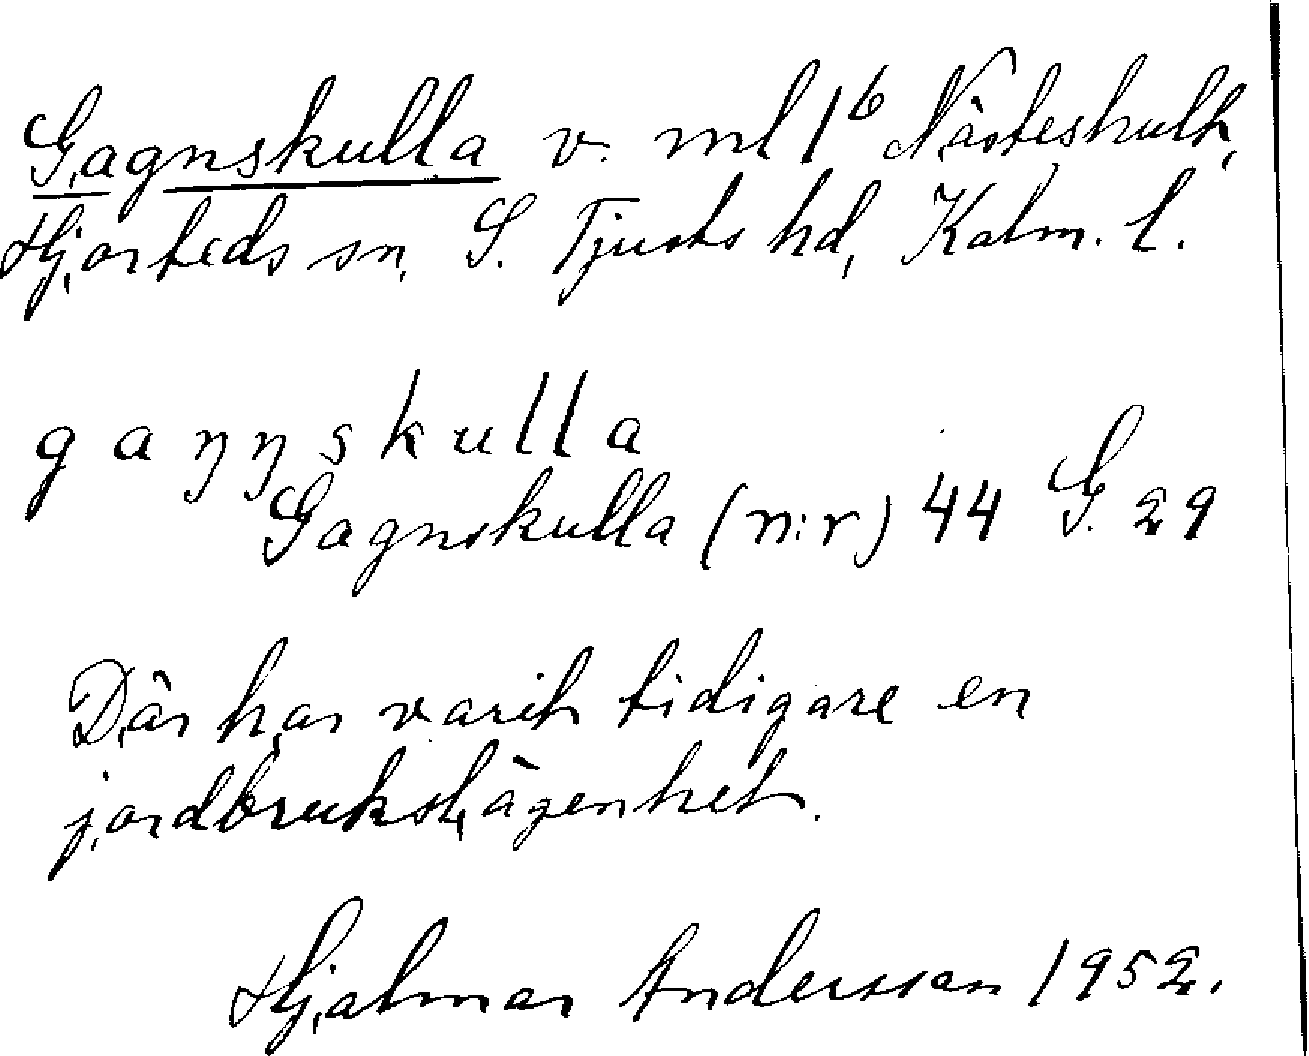 Gagnskulla v. ml 1⁶ Näskeshult,
Hjorteds sn, S. Tjusts hd, Kalm. l.
gaŋŋskulla
Gagnskulla (n:r) 44 G. 29
Där har varit tidigare en
jordbrukslägenhet.
Hjalmar Andersson 1952.